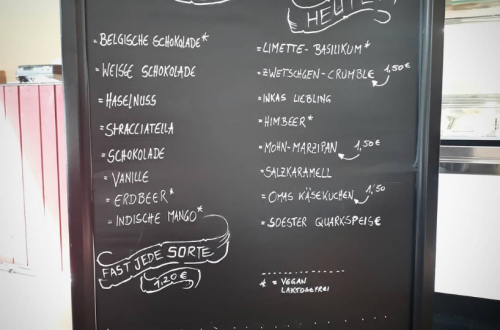 = BELGISCHE SCHOKOLADE*
= WEIẞE SCHOKOLADE
= HASELNUSS
= STRACCIATELLA
= SCHOKOLADE
= VANILLE
= ERDBEER*
= INDISCHE MANGO*
FAST JEDE SORTE
1,20 €
HEUTE
= LIMETTE - BASILIKUM*
= ZWETSCHGEN - CRUMBLE 1,50€
= INKAS LIEBLING
= HIMBEER*
= MOHN - MARZIPAN 1,50€
= SALZKARAMELL
= OMAS KÄSEKUCHEN 1,50
= SOESTER QUARKSPEISE
* = VEGAN
LAKTOSEFREI